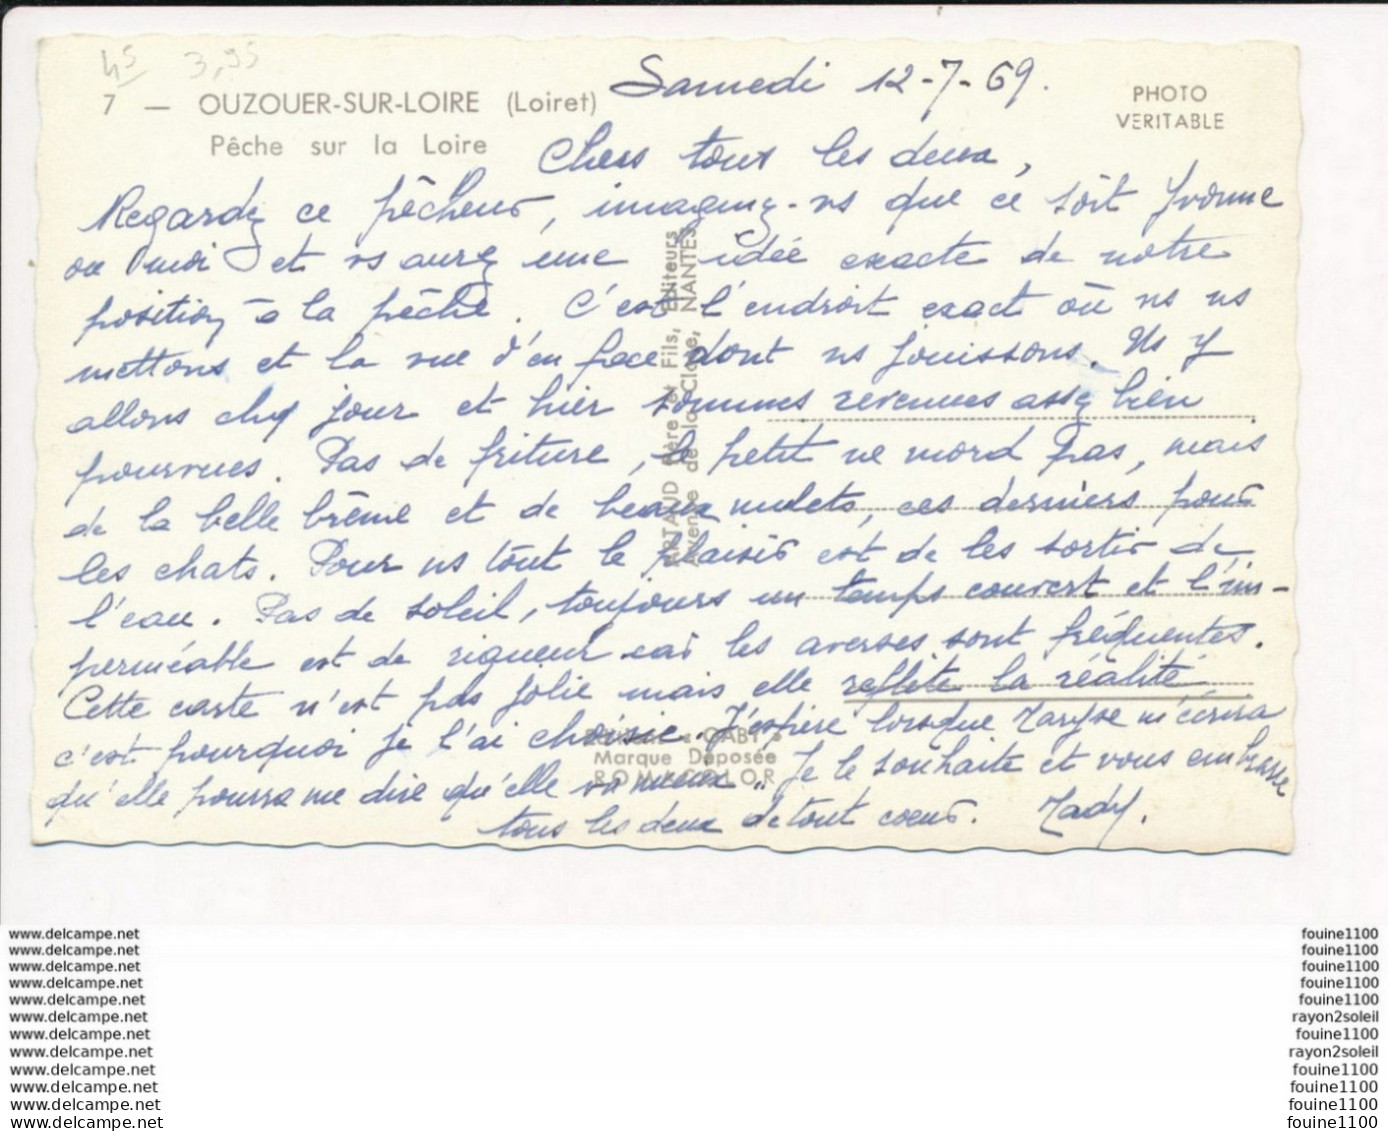 45 3,95
7 — OUZOUER-SUR-LOIRE (Loiret)
Pêche sur la Loire
PHOTO
VERITABLE
Samedi 12-7-69.
Chers tous les deux,
Regardez ce pêcheur, imaginez-vs que ce soit Yvonne
ou moi et vs aurez une idée exacte de notre
position à la pêche. C'est l'endroit exact où ns ns
mettons et la vue d'en face dont ns jouissons. Ns y
allons chq jour et hier sommes revenues assez bien
pourvues. Pas de friture, le petit ne mord pas, mais
de la belle brême et de beaux mulets, ces derniers pour
les chats. Pour ns tout le plaisir est de les sortir de
l'eau. Pas de soleil, toujours un temps couvert et l'im-
perméable est de rigueur car les averses sont fréquentes.
Cette carte n'est pas jolie mais elle reflète la réalité
c'est pourquoi je l'ai choisie. J'espère lorsque m'écrira
qu'elle pourra me dire qu'elle va mieux.. Je le souhaite et vous embrasse
tous les deux de tout coeur.
ARTAUD Père et Fils, Editeurs
Avenue de la Close, NANTES
Edition « GABY »
Marque Déposée
ROMACOLOR
www.delcampe.net
www.delcampe.net
www.delcampe.net
www.delcampe.net
www.delcampe.net
www.delcampe.net
www.delcampe.net
www.delcampe.net
www.delcampe.net
www.delcampe.net
www.delcampe.net
www.delcampe.net
fouine1100
fouine1100
fouine1100
fouine1100
fouine1100
rayon2soleil
fouine1100
rayon2soleil
fouine1100
fouine1100
fouine1100
fouine1100